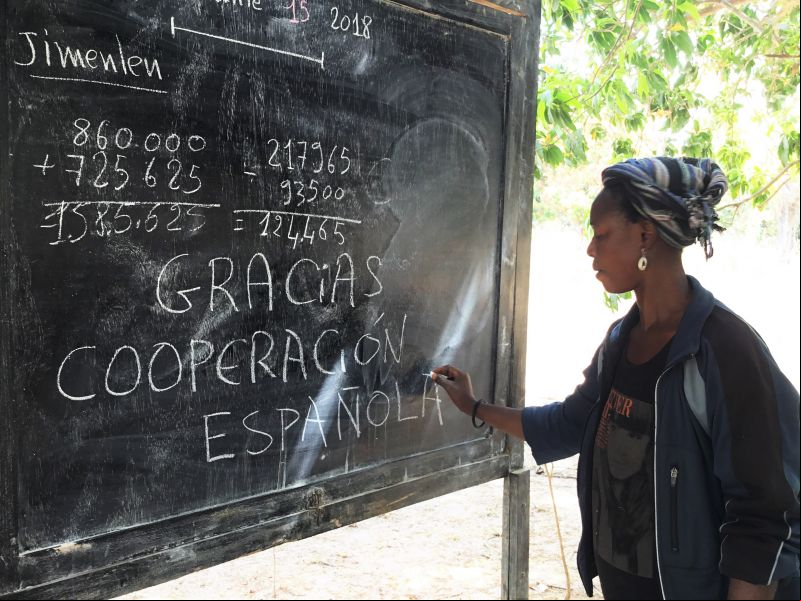 15 2018
Jimenlen
860.000
+ 725.625
=1585.625
- 217965
93500
= 124.465
GRACiAS
COOPERACIÓN
ESPAÑOLA